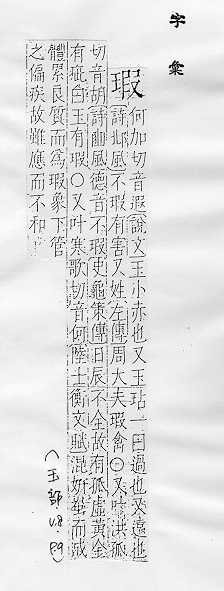 字彙
瑕 何加切音遐說文玉小赤也又玉玷一曰過也又遠也
詩邶風不瑕有害又姓左傳周大夫瑕禽〇又叶洪孤
切音胡詩豳風德音不瑕史龜策傳日辰不全故有孤虛黃金
有疵白玉有瑕〇又叶寒歌切音何陸士衡文賦混妍蚩而成
體累良質而爲瑕象下管
之偏疾故雖應而不和